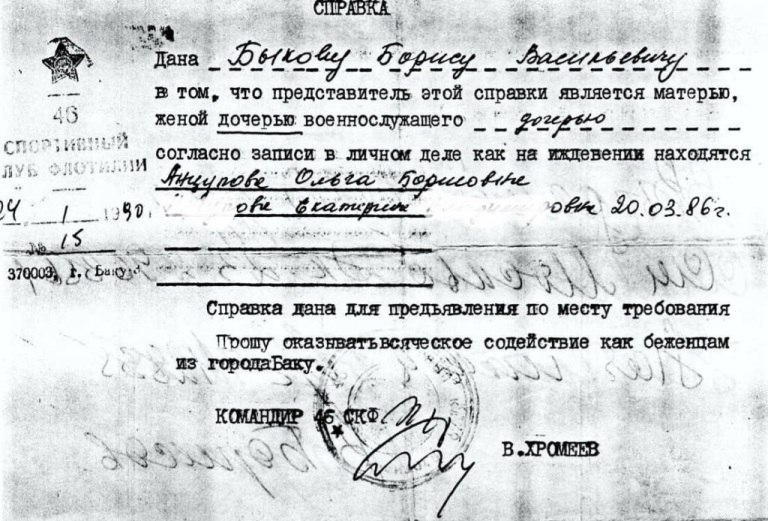 СПРАВКА
Дана Быкову Борису Васильевичу
в том, что представитель этой справки является матерью,
женой дочерью военнослужащего дочерью
согласно записи в личном деле как на иждевении находятся
Анцупова Ольга Борисовна
Екатерина 20.03.86г.
46
СПОРТИВНЫЙ
ЛУБ ФЛОТИЛИИ
24 1 1990
№ 15
370003, г. Баку
Справка дана для предъявления по месту требования
Прошу оказывать всяческое содействие как беженцам
из города Баку.
КОМАНДИР 46 СКФ
В.ХРОМЕЕВ